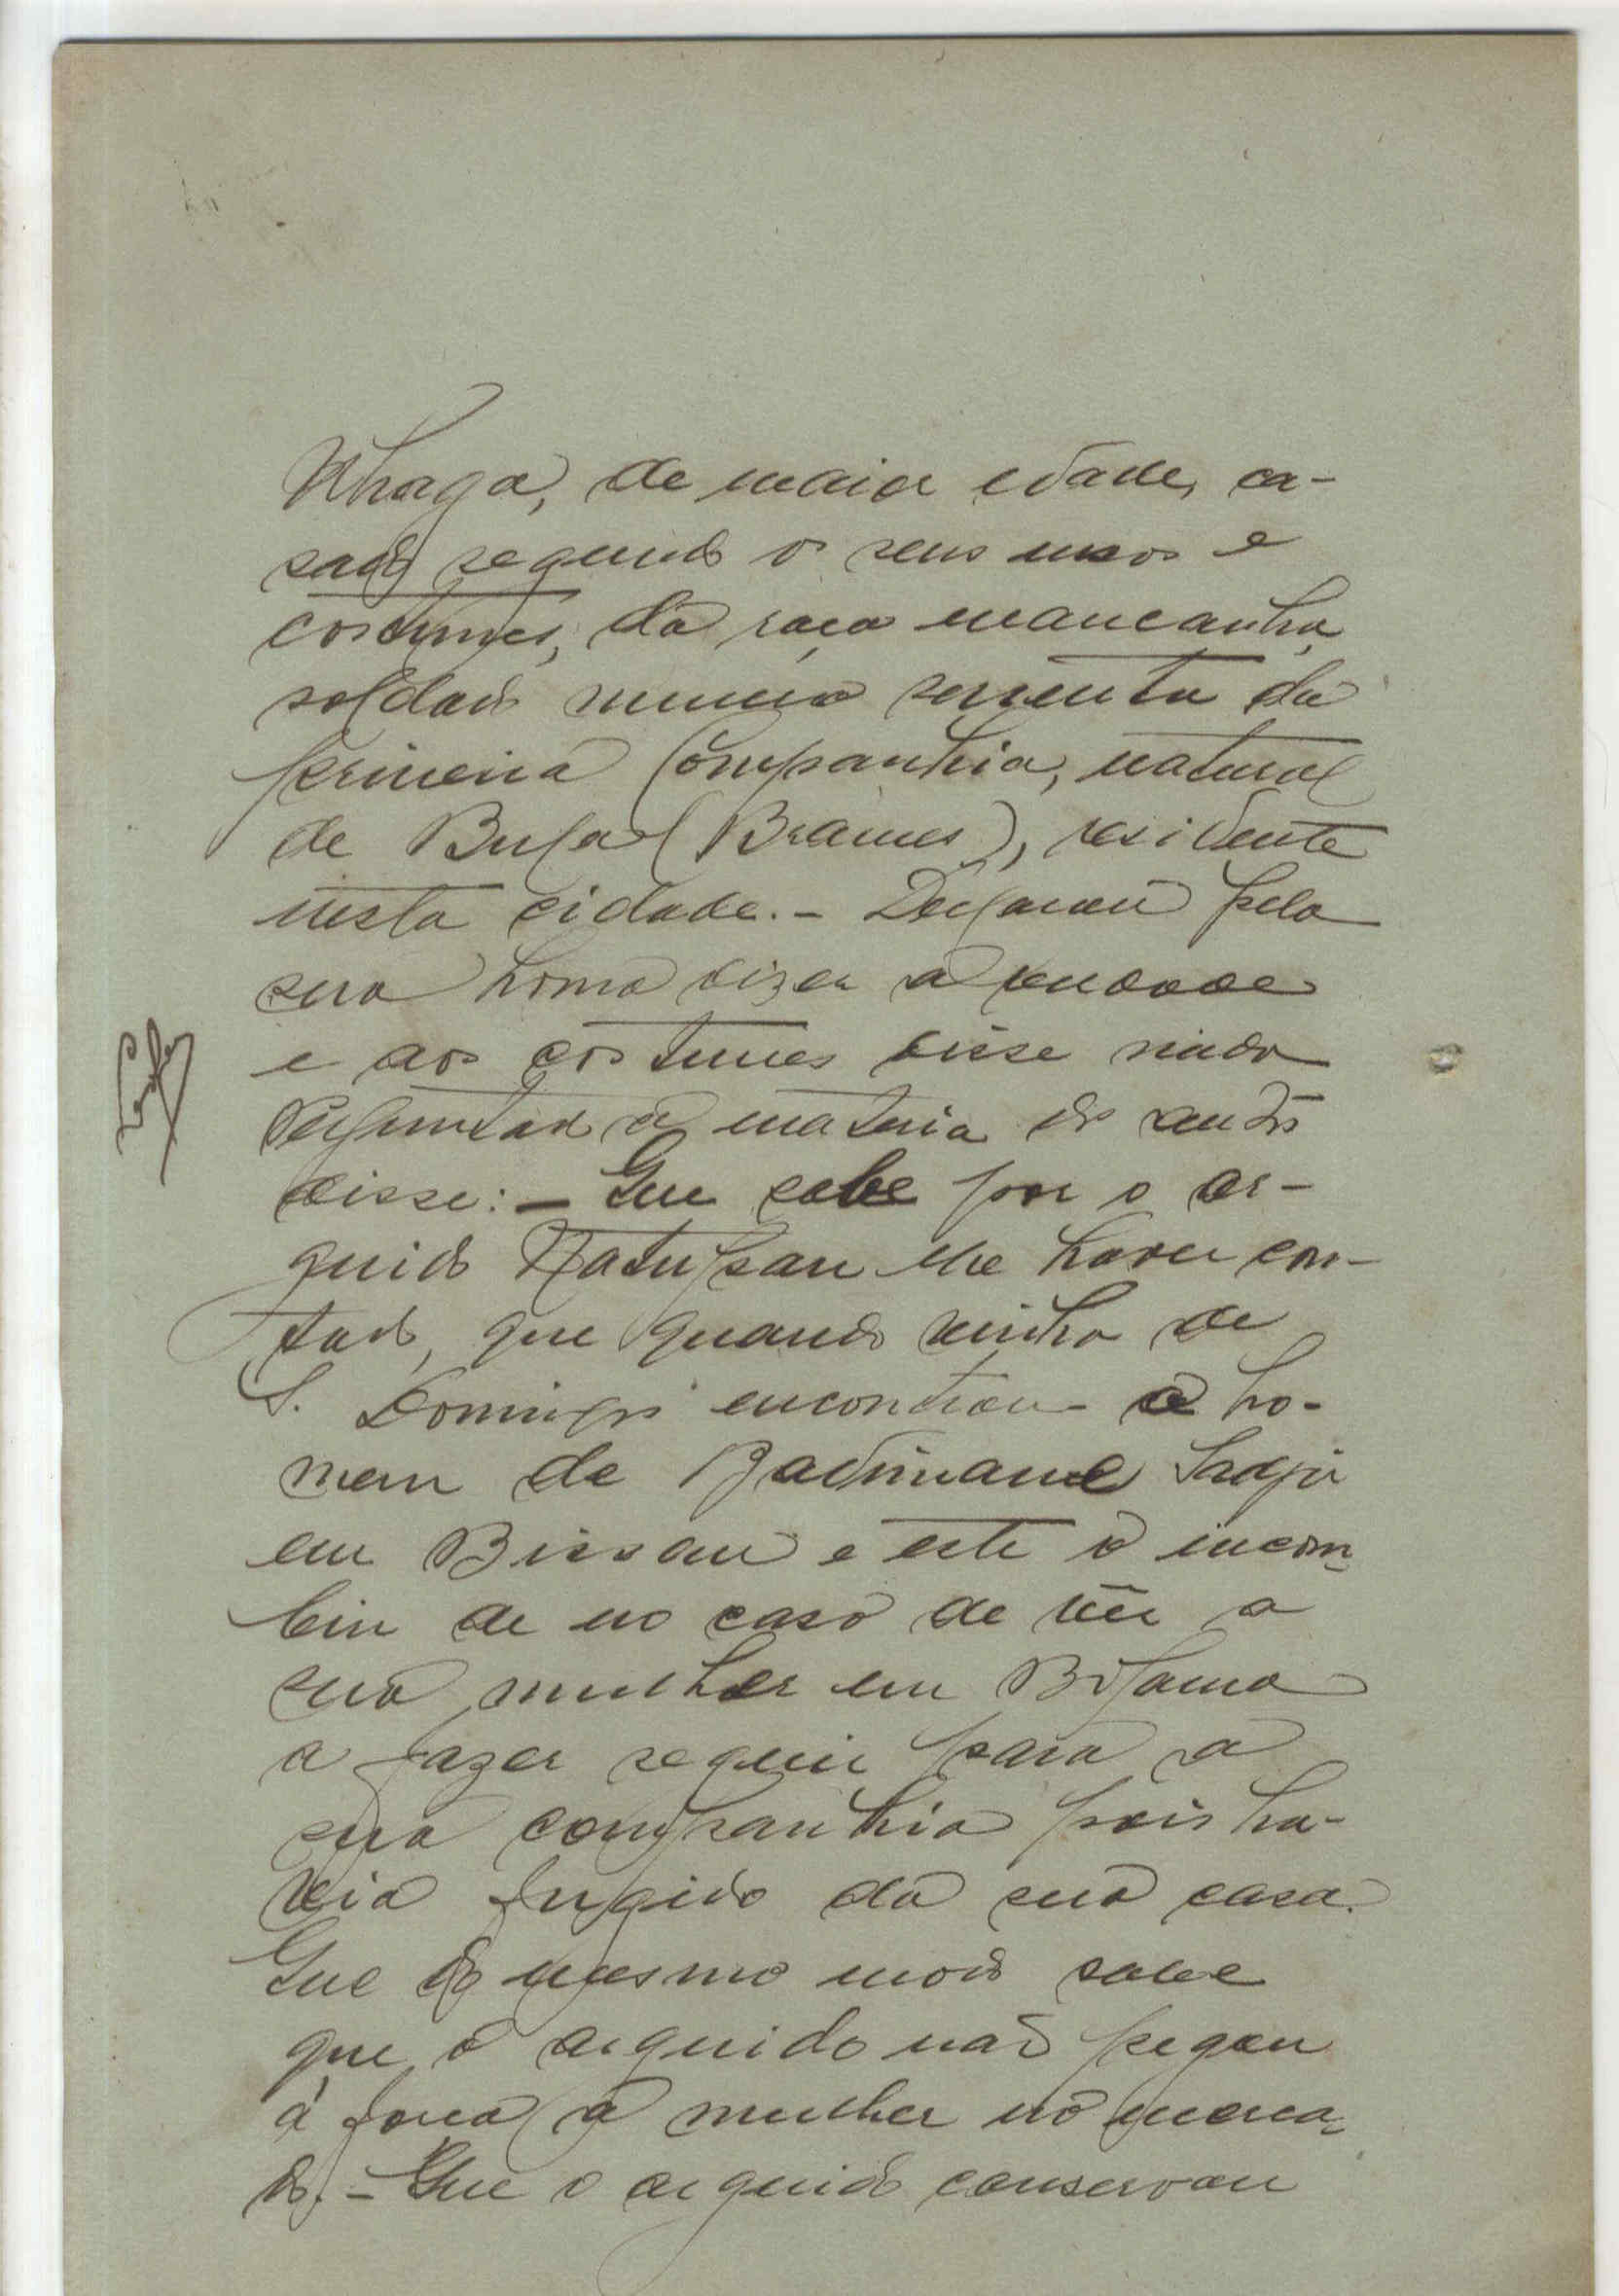 de maior edade, ca-
sado segundo os seus usos e
costumes, da raça mancanha,
soldado numero sessenta da
primeira Companhia, natural
de Bula (Brames), residente
nesta cidade. - Declarou pela
sua honra dizer a verdade
e aos costumes disse nada
Perguntado á materia do auto
disse: - Que sabe por o ar-
guido lhe haver con-
tado, que quando vinha de
S. Domingos encontrou o ho-
mem de
em Bissau e este o incom-
biu de no caso de vêr a
sua mulher em Bolama
a fazer seguir para a
sua companhia pois ha-
via fugido da sua casa.
Que do mesmo modo sabe
que o arguido não pegou
á força a mulher no merca-
do. - Que o arguido conservou